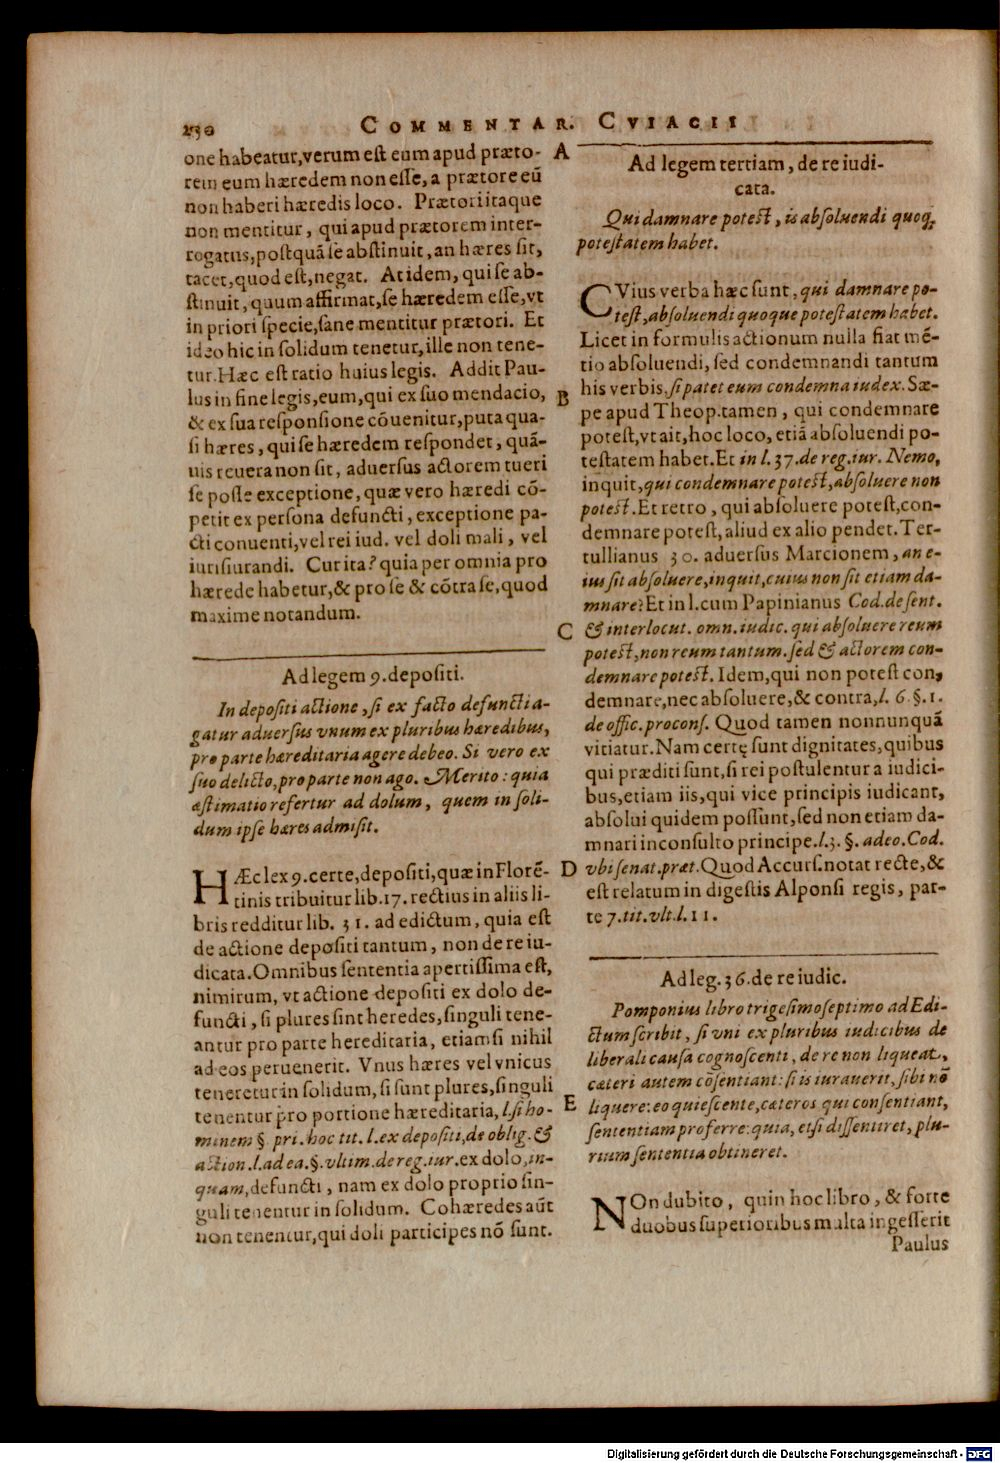 230
COMMENTAR. CVIACII
one habeatur, verum est eum apud præto-
rem eum hæredem non esse, a prætore eũ
non haberi hæredis loco. Prætori itaque
non mentitur, qui apud prætorem inter-
rogatus, postquã se abstinuit, an hæres sit,
tacet, quod est, negat. At idem, qui se ab-
stinuit, quum affirmat, se hæredem esse, vt
in priori specie, sane mentitur prætori. Et
ideo hic in solidum tenetur, ille non tene-
tur. Hæc est ratio huius legis. Addit Pau-
lus in fine legis, eum, qui ex suo mendacio,
& ex sua responsione cõuenitur, puta qua-
si hæres, qui se hæredem respondet, quã-
uis reuera non sit, aduersus actorem tueri
se posse exceptione, quæ vero hæredi cõ-
petit ex persona defuncti, exceptione pa-
cti conuenti, vel rei iud. vel doli mali, vel
iurisiurandi. Cur ita? quia per omnia pro
hærede habetur, & pro se & cõtra se, quod
maxime notandum.
Ad legem 9. depositi.
In depositi actione, si ex facto defuncti a-
gatur aduersus vnum ex pluribus hæredibus,
pro parte hæreditaria agere debeo. Si vero ex
suo delicto, pro parte non ago. Merito: quia
æstimatio refertur ad dolum, quem in soli-
dum ipse hæres admisit.
HÆc lex 9. certe, depositi, quæ in Florẽ-
tinis tribuitur lib. 17. rectius in aliis li-
bris redditur lib. 31. ad edictum, quia est
de actione depositi tantum, non de re iu-
dicata. Omnibus sententia apertissima est,
nimirum, vt actione depositi ex dolo de-
functi, si plures sint heredes, singuli tene-
antur pro parte hereditaria, etiamsi nihil
ad eos peruenerit. Vnus hæres vel vnicus
teneretur in solidum, si sunt plures, singuli
tenentur pro portione hæreditaria, l. si ho-
minem §. pri. hoc tit. l. ex depositi, de oblig. &
action. l. ad ea. §. vltim. de reg. iur. ex dolo, in-
quam, defuncti, nam ex dolo proprio sin-
guli tenentur in solidum. Cohæredes aũt
non tenentur, qui doli participes nõ sunt.
A
B
C
D
E
Ad legem tertiam, de re iudi-
cata.
Qui damnare potest, is absoluendi quoq;
potestatem habet.
CVius verba hæc sunt, qui damnare po-
test, absoluendi quoque potestatem habet.
Licet in formulis actionum nulla fiat mẽ-
tio absoluendi, sed condemnandi tantum
his verbis, si patet eum condemna iudex. Sæ-
pe apud Theop. tamen, qui condemnare
potest, vt ait, hoc loco, etiã absoluendi po-
testatem habet. Et in l. 37. de reg. iur. Nemo,
inquit, qui condemnare potest, absoluere non
potest. Et retro, qui absoluere potest, con-
demnare potest, aliud ex alio pendet. Ter-
tullianus 30. aduersus Marcionem, an e-
ius sit absoluere, inquit, cuius non sit etiam da-
mnare? Et in l. cum Papinianus Cod. de sent.
& interlocut. omn. iudic. qui absoluere reum
potest, non reum tantum. sed & actorem con-
demnare potest. Idem, qui non potest con-
demnare, nec absoluere, & contra, l. 6. §. 1.
de offic. procons. Quod tamen nonnunquã
vitiatur. Nam certę sunt dignitates, quibus
qui præditi sunt, si rei postulentur a iudici-
bus, etiam iis, qui vice principis iudicant,
absolui quidem possunt, sed non etiam da-
mnari inconsulto principe. l. 3. §. adeo. Cod.
vbi senat. præt. Quod Accurs. notat recte, &
est relatum in digestis Alponsi regis, par-
te 7. tit. vlt. l. 11.
Ad leg. 36. de re iudic.
Pomponius libro trigesimoseptimo ad Edi-
ctum scribit, si vni ex pluribus iudicibus de
liberali causa cognoscenti, de re non liqueat,
cæteri autem cõsentiant: si is iurauerit, sibi nõ
liquere: eo quiescente, cæteros qui consentiant,
sententiam proferre: quia, etsi dissentiret, plu-
rium sententia obtineret.
NOn dubito, quin hoc libro, & forte
duobus superioribus multa ingesserit
Paulus
Digitalisierung gefördert durch die Deutsche Forschungsgemeinschaft - DFG